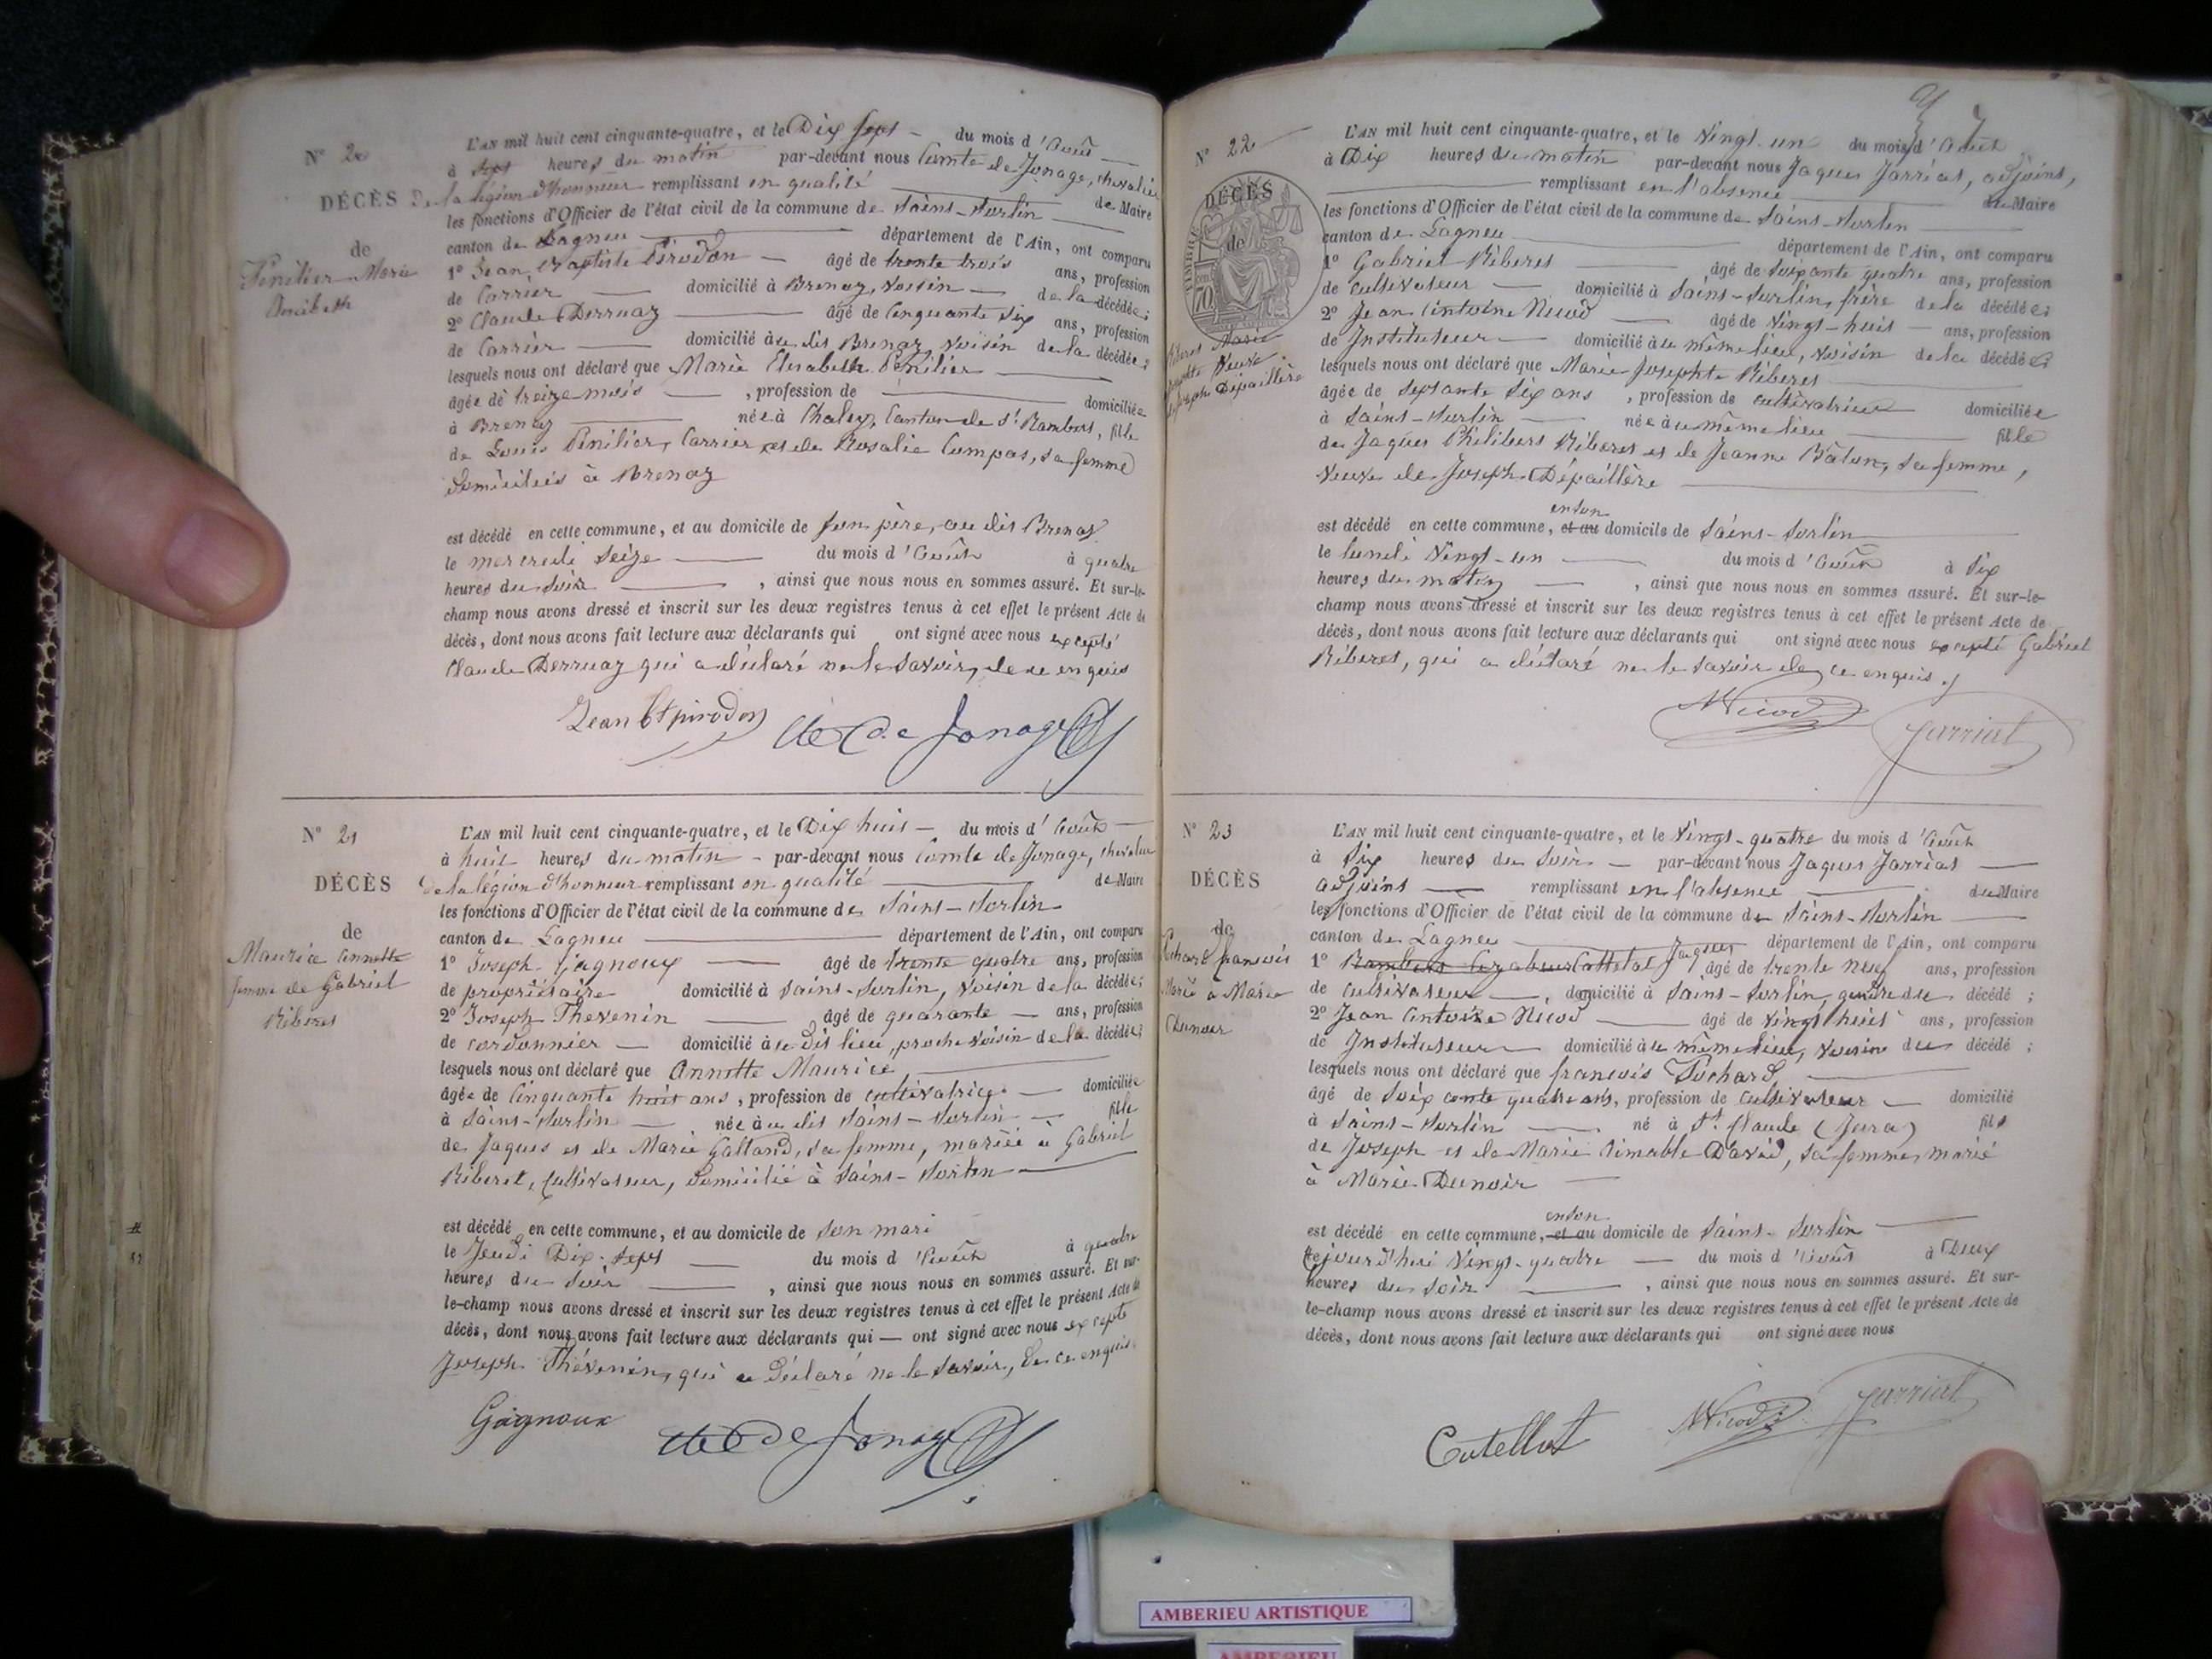 N° 20
DÉCÈS
de
Pénilier Marie
L'AN mil huit cent cinquante-quatre, et le Dix Sept du mois d'Août
à sept heures du matin par-devant nous Comte de Jonage, chevalier
De la légion d'honneur remplissant en qualité de Maire
les fonctions d'Officier de l'état civil de la commune de Saint-Sorlin
canton de Lagneu département de l'Ain, ont comparu
1° Jean Baptiste Pirodon âgé de trente trois ans, profession
de Carrier domicilié à Brenaz, voisin de la décédée;
2° Claude Derruaz âgé de Cinquante Six ans, profession
de Carrier domicilié au dit Brenaz, voisin de la décédée;
lesquels nous ont déclaré que Marie Elisabeth Pénilier
âgée de treize mois, profession de domiciliée
à Brenaz née à Chaley, Canton de St Rambert, fille
de Louis Pénilier, Carrier et de Rosalie Compas, sa femme
domiciliés à Brenaz
est décédé en cette commune, et au domicile de son père, au dit Brenaz
le mercredi Seize du mois d'Août à quatre
heures du Soir, ainsi que nous nous en sommes assuré. Et sur-le-
champ nous avons dressé et inscrit sur les deux registres tenus à cet effet le présent Acte de
décès, dont nous avons fait lecture aux déclarants qui ont signé avec nous excepté
Claude Derruaz qui a déclaré ne le savoir, de ce enquis
Jean Bt pirodon de Jonage
N° 21
DÉCÈS
de
Maurice Annette
femme de Gabriel
Riberet
L'AN mil huit cent cinquante-quatre, et le Dix huit du mois d'Août
à huit heures du matin par-devant nous Comte de Jonage, chevalier
De la légion d'honneur remplissant en qualité de Maire
les fonctions d'Officier de l'état civil de la commune de Saint-Sorlin
canton de Lagneu département de l'Ain, ont comparu
1° Joseph Gagnoux âgé de trente quatre ans, profession
de propriétaire domicilié à Saint-Sorlin, voisin de la décédée;
2° Joseph Thevenin âgé de quarante ans, profession
de cordonnier domicilié au dit lieu, proche voisin de la décédée;
lesquels nous ont déclaré que Annette Maurice
âgée de Cinquante huit ans, profession de cultivatrice domiciliée
à Saint-Sorlin née au dit Saint-Sorlin fille
de Jaques et de Marie Galland, sa femme, mariée à Gabriel
Riberet, Cultivateur, domicilié à Saint-Sorlin
est décédé en cette commune, et au domicile de son mari
le Jeudi Dix-Sept du mois d'Août à quatre
heures du Soir, ainsi que nous nous en sommes assuré. Et sur-
le-champ nous avons dressé et inscrit sur les deux registres tenus à cet effet le présent Acte de
décès, dont nous avons fait lecture aux déclarants qui — ont signé avec nous excepté
Joseph Thévenin, qui a déclaré ne le savoir, de ce enquis
Gagnoux de Jonage
N° 22
DÉCÈS
de
Riberet Marie
Veuve
Joseph Dépaillère
L'AN mil huit cent cinquante-quatre, et le Vingt un du mois d'Août
à Dix heures du matin par-devant nous Jaques Jarriat, adjoint,
remplissant en l'absence du Maire
les fonctions d'Officier de l'état civil de la commune de Saint-Sorlin
canton de Lagneu département de l'Ain, ont comparu
1° Gabriel Riberet âgé de soixante quatre ans, profession
de cultivateur domicilié à Saint-Sorlin, frère de la décédée;
2° Jean Antoine Nicod âgé de Vingt-huit ans, profession
de Instituteur domicilié au même lieu, voisin de la décédée;
lesquels nous ont déclaré que Marie Josephte Riberet
âgée de septante Six ans, profession de cultivatrice domiciliée
à Saint-Sorlin née au même lieu fille
de Jaques Philibert Riberet et de Jeanne Baton, sa femme,
Veuve de Joseph Dépaillère
est décédé en cette commune, en son et au domicile de Saint-Sorlin
le lundi Vingt-un du mois d'Août à Six
heures du matin, ainsi que nous nous en sommes assuré. Et sur-le-
champ nous avons dressé et inscrit sur les deux registres tenus à cet effet le présent Acte de
décès, dont nous avons fait lecture aux déclarants qui ont signé avec nous excepté Gabriel
Riberet, qui a déclaré ne le savoir de ce enquis.
Nicod Jarriat
N° 23
DÉCÈS
de
françois
Marié à Marie
Dunoir
L'AN mil huit cent cinquante-quatre, et le Vingt-quatre du mois d'Août
à Six heures du Soir par-devant nous Jaques Jarriat
adjoint remplissant en l'absence du Maire
les fonctions d'Officier de l'état civil de la commune de Saint-Sorlin
canton de Lagneu département de l'Ain, ont comparu
1° Cattelat Jaques âgé de trente neuf ans, profession
de Cultivateur, domicilié à Saint-Sorlin, gendre du décédé;
2° Jean Antoine Nicod âgé de vingt huit ans, profession
de Instituteur domicilié au même lieu, voisin du décédé;
lesquels nous ont déclaré que françois Pochard,
âgé de Soixante quatre ans, profession de Cultivateur domicilié
à Saint-Sorlin né à St. Claude (Jura) fils
de Joseph et de Marie Aimable David, sa femme, marié
à Marie Dunoir
est décédé en cette commune, en son et au domicile de Saint-Sorlin
Cejourd'hui Vingt-quatre du mois d'Août à Deux
heures du Soir, ainsi que nous nous en sommes assuré. Et sur-
le-champ nous avons dressé et inscrit sur les deux registres tenus à cet effet le présent Acte de
décès, dont nous avons fait lecture aux déclarants qui ont signé avec nous
Catellat Nicod Jarriat
AMBERIEU ARTISTIQUE